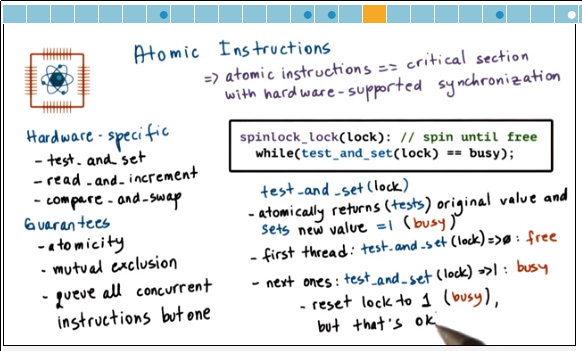 Atomic Instructions
=> atomic instructions == critical section
with hardware-supported synchronization
Hardware-specific
- test_and_set
- read_and_increment
- compare_and_swap
Guarantees
- atomicity
- mutual exclusion
- queue all concurrent
instructions but one
spinlock_lock(lock): // spin until free
while(test_and_set(lock) == busy);
test_and_set(lock)
- atomically returns (tests) original value and
sets new value =1 (busy)
- first thread: test_and_set(lock)=>0: free
- next ones: test_and_set(lock)=>1: busy
- reset lock to 1 (busy),
but that's ok